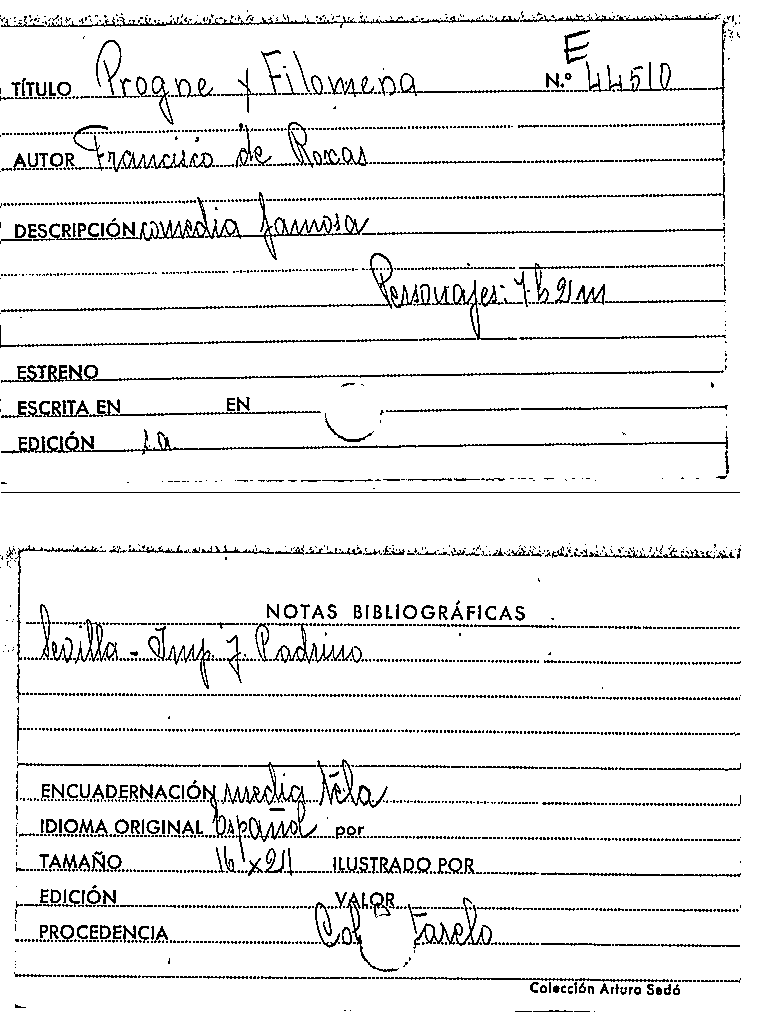 E
TÍTULO Progne y Filomena N.º 44510
AUTOR Francisco de Roxas
DESCRIPCIÓN comedia famosa
Personajes: 7 h 2 m
ESTRENO
ESCRITA EN EN
EDICIÓN 1a
NOTAS BIBLIOGRÁFICAS
Sevilla - Imp. J. Padrino
ENCUADERNACIÓN media tela
IDIOMA ORIGINAL Español por
TAMAÑO 16 x 21 ILUSTRADO POR
EDICIÓN VALOR
PROCEDENCIA Col
Colección Arturo Sedó